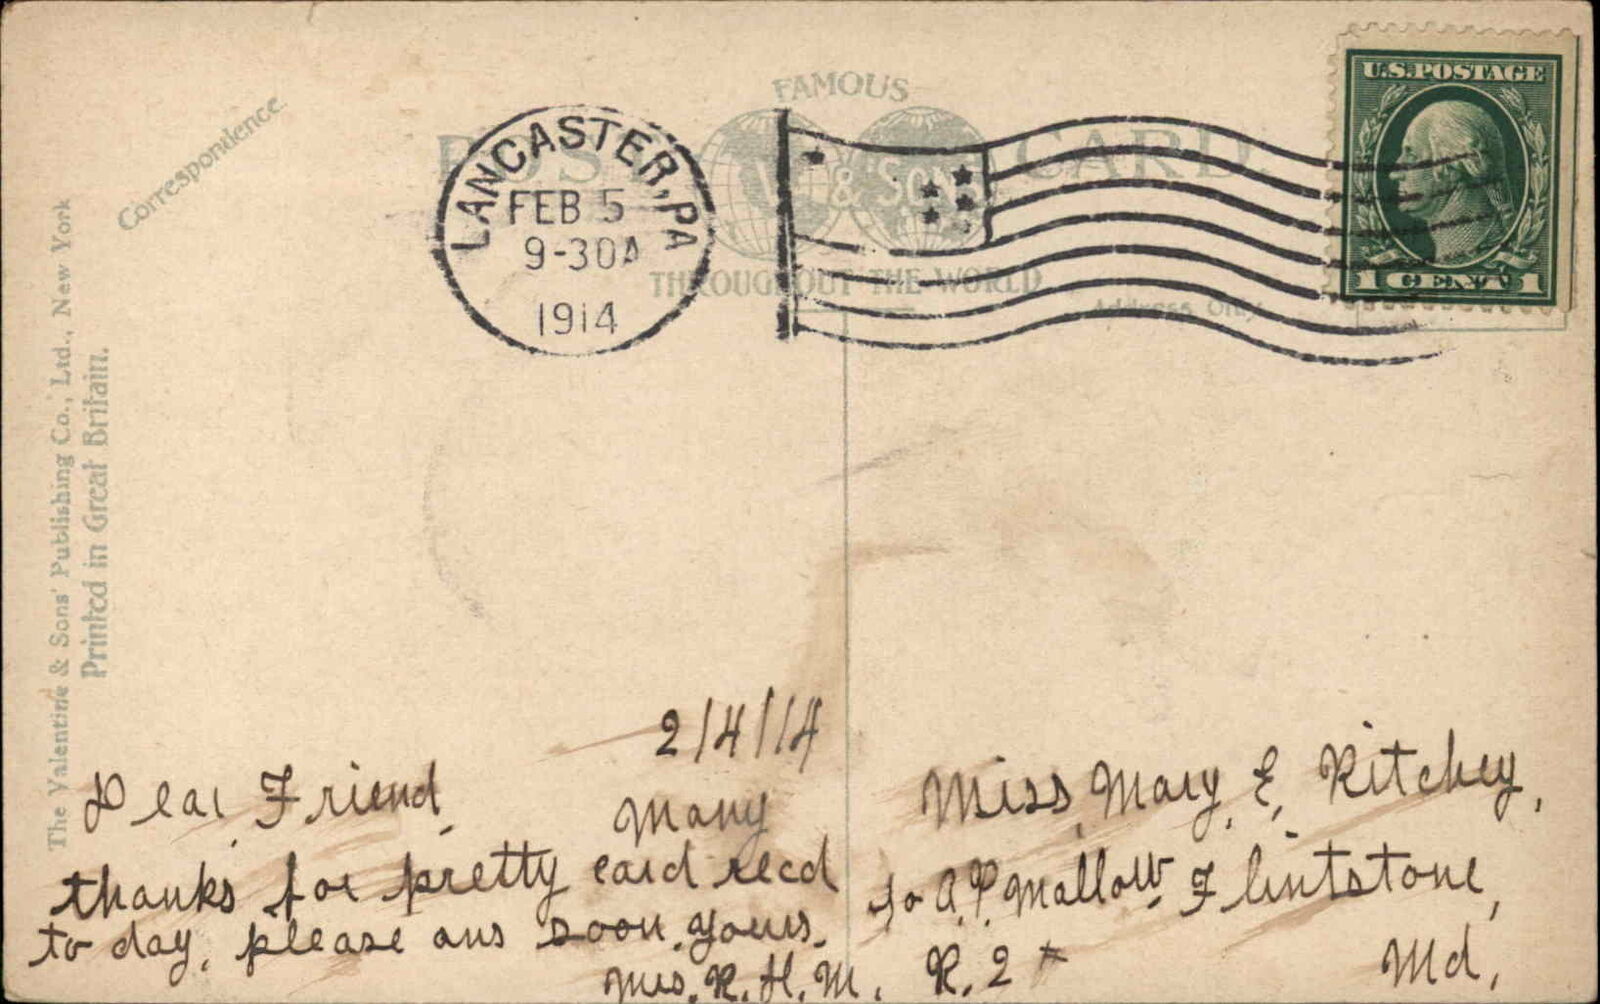 FAMOUS
POST CARD.
& SONS
THROUGHOUT THE WORLD
Correspondence
Address Only
The Valentine & Sons' Publishing Co., Ltd., New York
Printed in Great Britain.
LANCASTER, PA
FEB 5
9-30A
1914
U.S. POSTAGE
1 CENT 1
2/4/14
Dear Friend,
Many
thanks for pretty card recd
to day, please ans soon. yours.
Mrs. R. H. M.
Miss Mary, E, Ritchey,
to A.P. Mallow Flintstone,
R. 2
Md,